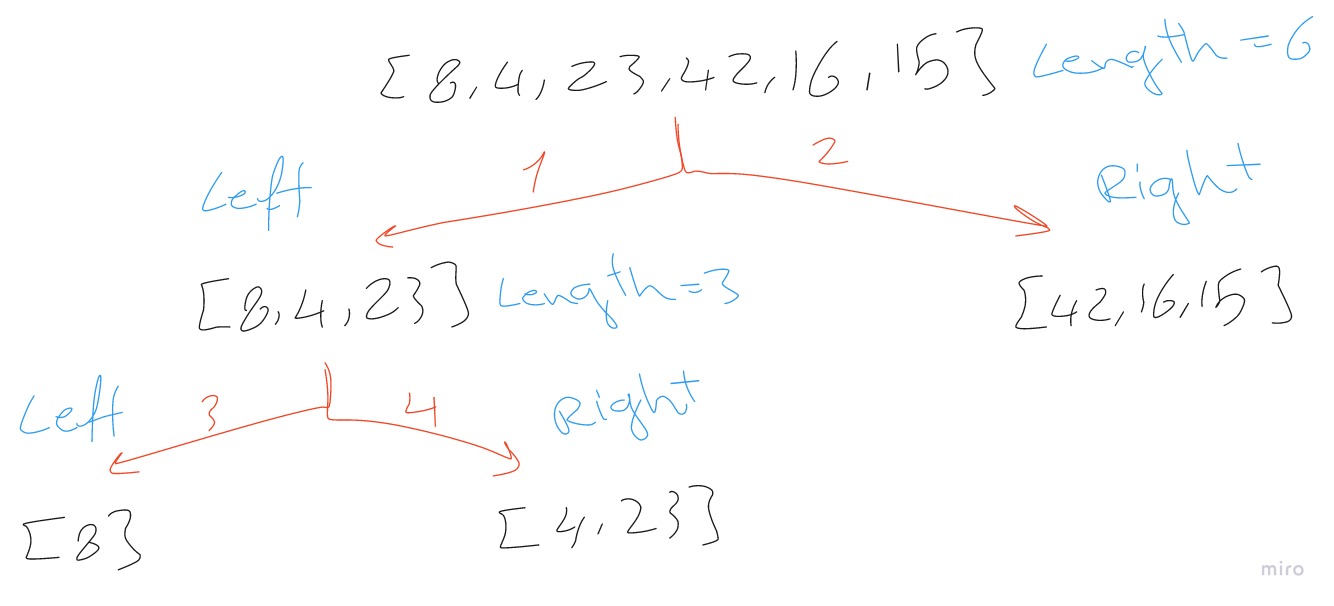 [8,4,23,42,16,15] Length=6
1 2
Left Right
[8,4,23] Length=3 [42,16,15]
Left 3 4 Right
[8] [4,23]
miro